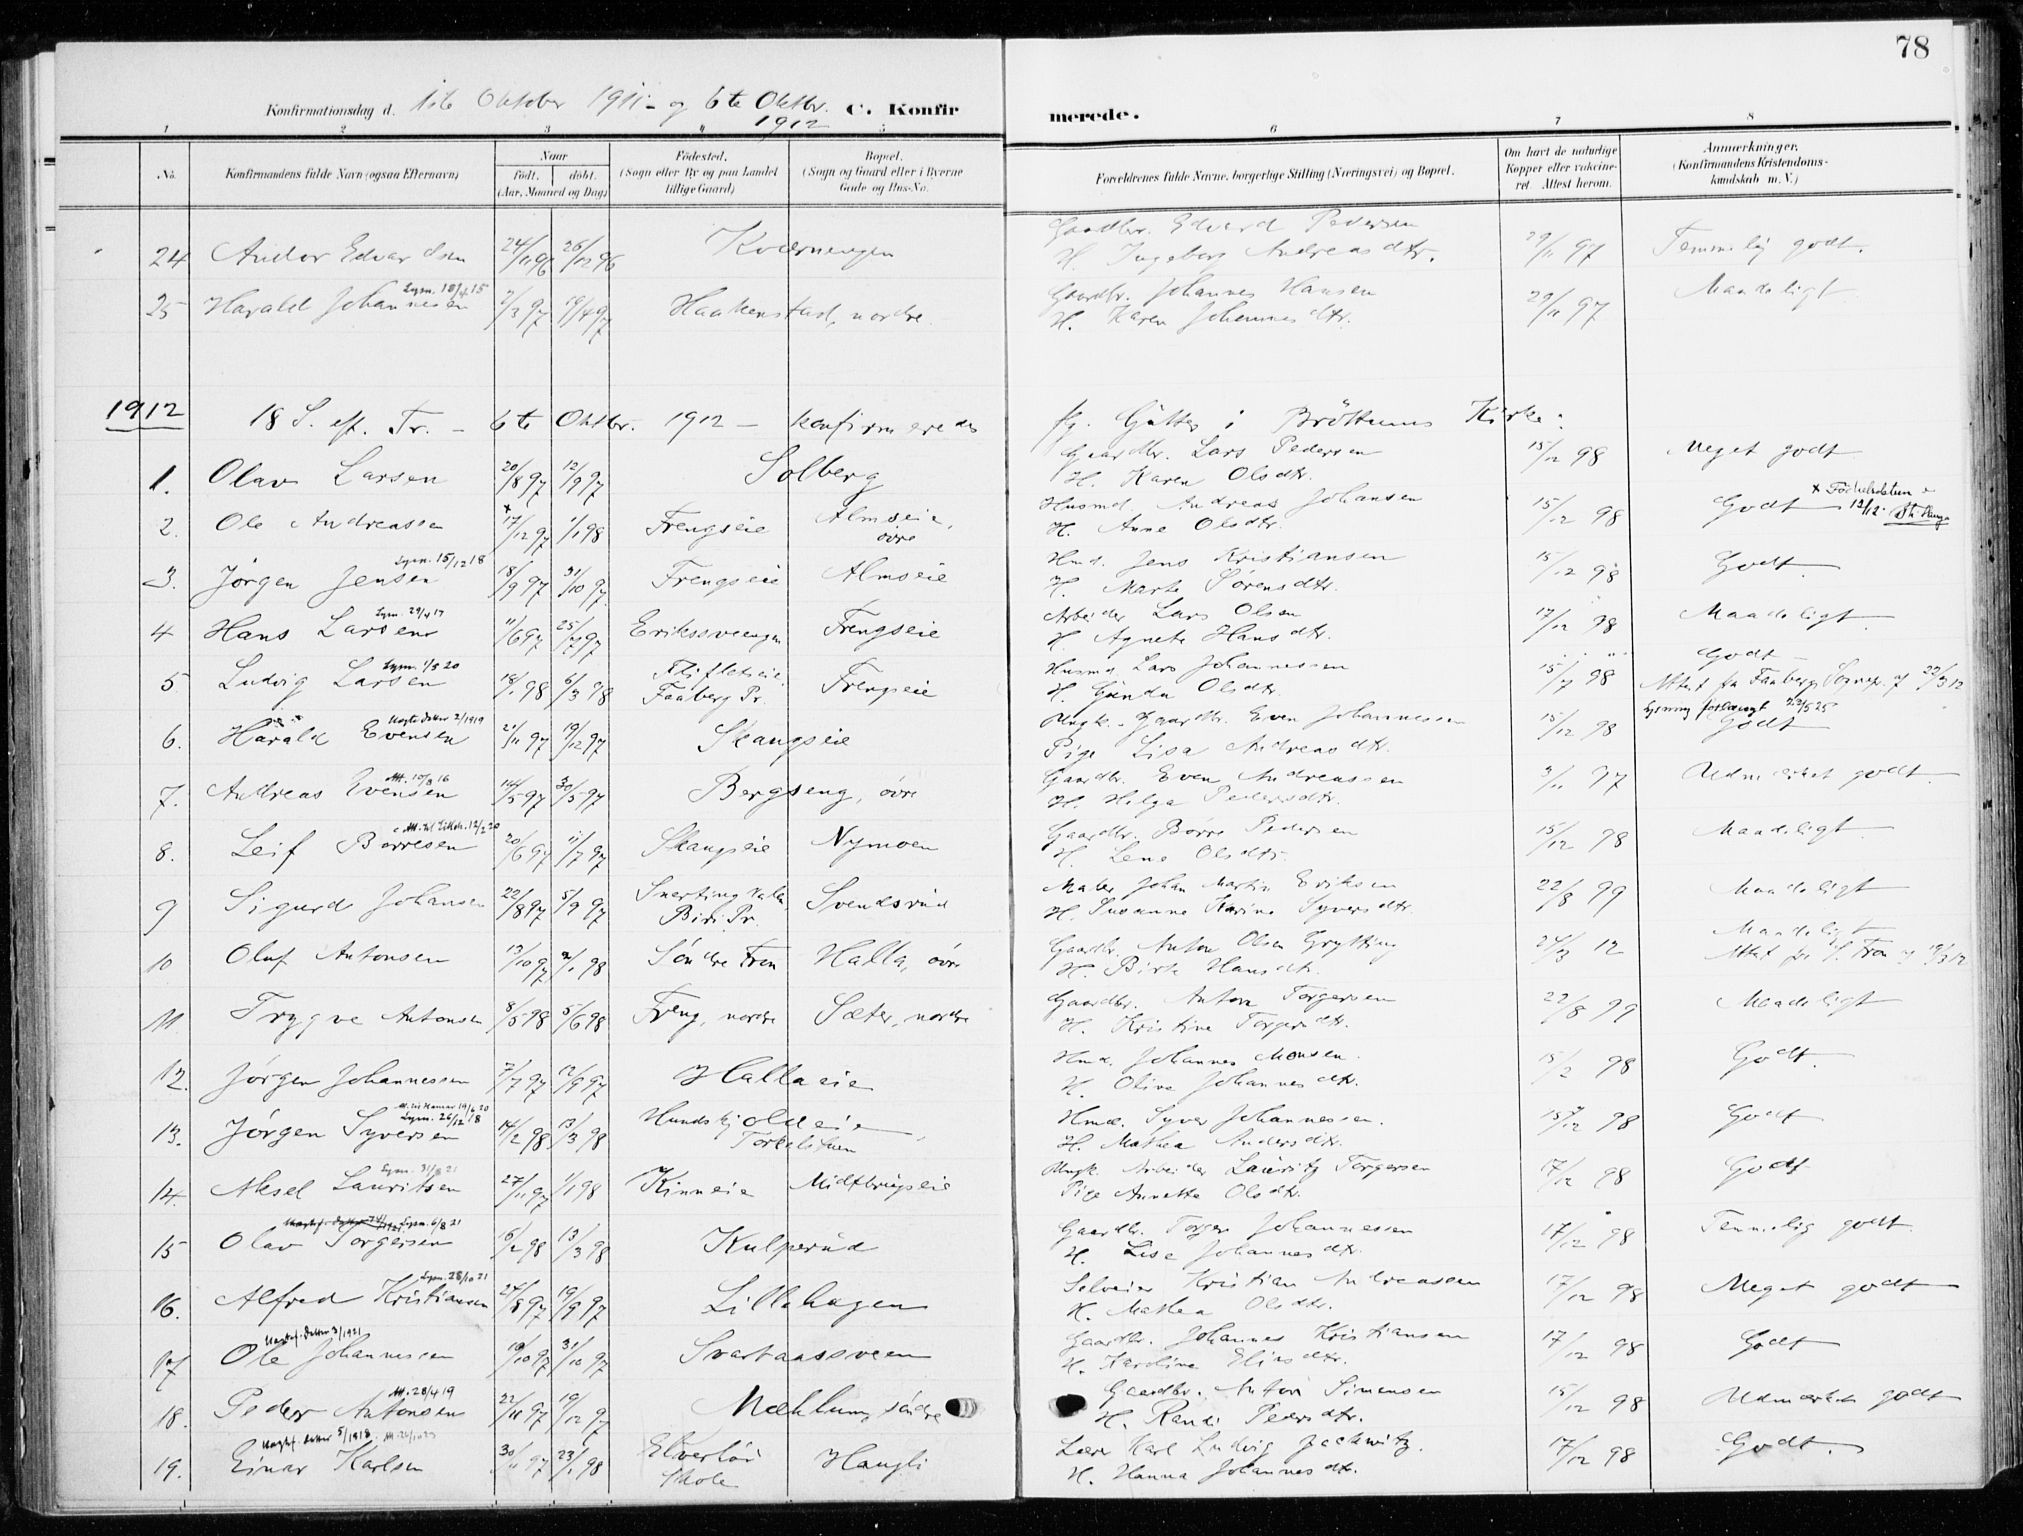 78
Konfirmationsdag d. 1ste Oktober 1911 - og 6te Oktbr. 1912 C. Konfirmerede.
1 2 3 4 5 6 7 8
No. Konfirmandens fulde Navn (ogsaa Efternavn) Naar født. døbt. (Aar, Maaned og Dag) Fødested. (Sogn eller By og paa Landet tillige Gaard) Bopæl. (Sogn og Gaard eller i Byerne Gade og Hus-No. Forældrenes fulde Navne, borgerlige Stilling (Næringsvei) og Bopæl. Om havt de naturlige Kopper eller vaccineret. Attest herom. Anmærkninger. (Konfirmandens Kristendomskundskab m. V.)
24 Andor Edvardsen 24/11 96 26/12 96 Kværnengen Gaardbr. Edvard Pedersen 29/11 97 Temmelig godt.
H. Ingeborg Andreasdtr.
25 Harald Johannesen Lysn. 18/4 15 2/3 97 19/4 97 Haakenstad, nordre Gaardbr. Johannes Hansen 29/11 97 Maadeligt
H. Karen Johannesdtr.
1912 18 S. ef. Tr. - 6te Oktbr. 1912 - konfirmeredes fg. Gutter i Brøttums Kirke:
1. Olav Larsen 20/8 97 12/9 97 Solberg Gaardbr. Lars Pedersen 15/12 98 Meget godt
H. Karen Olsdtr.
2. Ole Andreassen x 17/12 97 1/1 98 Frengseie Almseie, øvre Husmd. Andreas Johansen 15/12 98 Godt x Fødselsdatum er 19/12.
H. Anne Olsdtr.
3. Jørgen Jensen Lysn. 15/12 18 18/9 97 31/10 97 Frengseie Almseie Hmd. Jens Kristiansen 15/12 98 Godt
H. Marte Sørensdtr.
4 Hans Larsen Lysn. 29/4 17 11/6 97 25/7 97 Erikssveengen Frengseie Arbeider Lars Olsen 17/12 98 Maadeligt
H. Agnete Hansdtr.
5 Ludvig Larsen Lysn. 1/5 20 18/1 98 6/3 98 Faaberg Pr. Frengseie Husmd. Lars Johannessen 15/7 98 Godt
H. Gunda Olsdtr. Attest fra Faabergs Sognepr. af 22/3 12
6. Harald Evensen 2/1919 21/11 97 19/12 97 Skaugseie Ungk. Gaardbr. Even Johannessen 15/12 98 Lysning forlangt 23/5 25 Godt
Pige Lisa Andreasdtr.
7. Andreas Evensen Att. 10/3 16 14/5 97 30/5 97 Bergseng, øvre Gaardbr. Even Andreassen 3/11 97 Udmærket godt
H. Helga Pedersdtr.
8. Leif Børresen Att. til Lilleh. 12/2 20 20/6 97 11/7 97 Skaugseie Nymoen Gaardbr. Børre Pedersen 15/12 98 Maadeligt
H. Lena Olsdtr.
9 Sigurd Johansen 22/8 97 5/9 97 Biri Pr. Svendsrud Maler Johan Martin Eriksen 22/8 99 Maadeligt
H. Susanne Karine Syversdtr.
10 Oluf Antonsen 13/10 97 2/1 98 Søndre Fron Halla, øvre Gaardbr. Anton Olsen Grytting 24/3 12 Maadeligt
H. Birte Hansdtr. Attest fra S. Fron af 19/3 12
11 Trygve Antonsen 8/5 98 5/6 98 Freng, nordre Sæter, nordre Gaardbr. Anton Torgersen 22/8 99 Maadeligt
H. Kristine Torgersdtr.
12. Jørgen Johannessen 7/7 97 12/9 97 Hallaeie Hmd. Johannes Monsen. 15/2 98 Godt.
H. Oline Johannesdtr.
13. Jørgen Syversen Att. til Hamar 19/6 20 Lysn. 26/12 18 14/2 98 13/3 98 Hundskjoldeie, Hmd. Syver Johannessen. 15/12 98 Godt
H. Mathea Andersdtr.
14. Aksel Lauritsen Lysn. 31/8 21 27/11 97 1/1 98 Kinneie Midtbrugseie Ungk. Arbeider Lauritz Torgersen 17/12 98 Godt
Pige Annette Olsdtr.
15 Olav Torgersen Lysn. 6/8 21 6/2 98 13/3 98 Kulperud Gaardbr. Torger Johannessen 17/12 98 Temmelig godt
H. Lise Johannesdtr.
16. Alfred Kristiansen Lysn. 28/10 21 24/8 97 19/9 97 Lillehagen Selveier Kristian Andreassen 17/12 98 Meget godt
H. Mathea Olsdtr.
17 Ole Johannessen 3/1921 10/10 97 31/10 97 Svartaassveen Gaardbr. Johannes Kristiansen 17/12 98 Godt
H. Karoline Eliasdtr.
18. Peder Antonsen Att. 28/4 19 22/11 97 19/12 97 Mæhlum, søndre Gaardbr. Anton Simensen 15/12 98 Udmærket godt
H. Randi Pedersdtr.
19. Einar Karlsen 5/1918 30/11 97 23/1 98 skole Haugli Lærer Karl Ludvig Jackwitz. 17/12 98 Godt.
H. Hanna Johannesdtr.